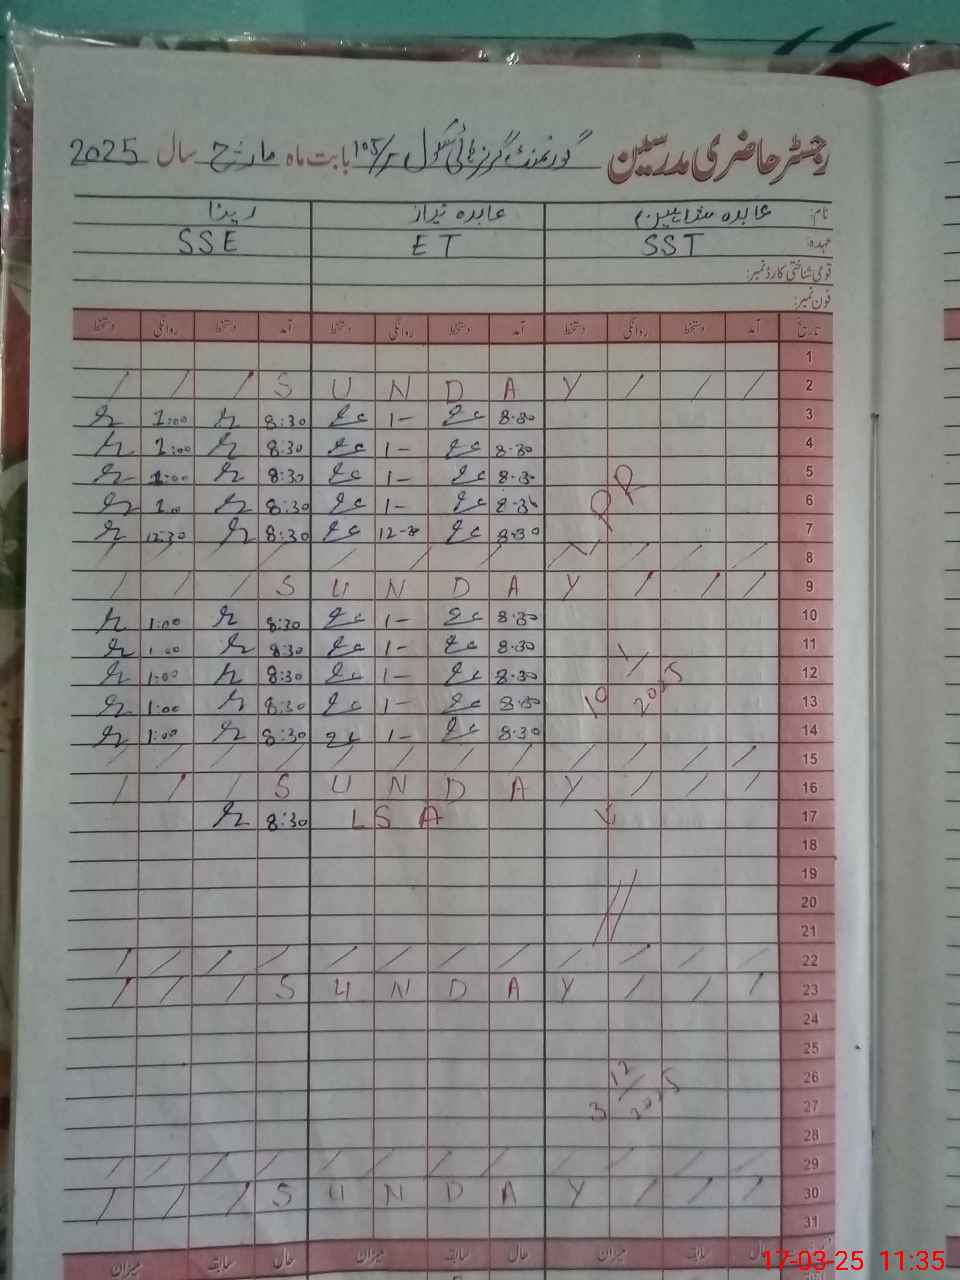 رجسٹر حاضری مدرسین گورنمنٹ گرلز ہائی سکول بابت ماہ مارچ سال 2025
نام: عابدہ عابدہ نیاز
عہدہ: SST ET SSE
قومی شناختی کارڈ نمبر:
فون نمبر:
تاریخ آمد دستخط روانگی دستخط آمد دستخط روانگی دستخط آمد دستخط روانگی دستخط
1
2 / / / S U N D A Y / / /
3 8.30 1- 8:30 1:00
4 8.30 1- 8:30 1:00
5 8.30 1- 8:30 1:00
6 8.30 1- 8:30 1.0
7 8.30 12-30 8:30 12:30
LPR
8 / / / / / / / / / /
9 / / / S U N D A Y / / /
10 8.30 1- 8:30 1:00
11 8.30 1- 8:30 1:00
12 8.30 1- 8:30 1:00
13 8.30 1- 8:30 1:00
14 8.30 1- 8:30 1:00
10 1/2025
15 / / / / / / / / / / / /
16 / / / S U N D A Y / / /
17 LSA 8:30
18
19
20
21
22 / / / / / / / / / / / /
23 / / / S U N D A Y / / /
24
25
26
27
3 12/2025
28
29 / / / / / / / / / / / /
30 / / / S U N D A Y / / /
31
حال سابقہ میزان حال سابقہ میزان حال سابقہ میزان
17-03-25 11:35